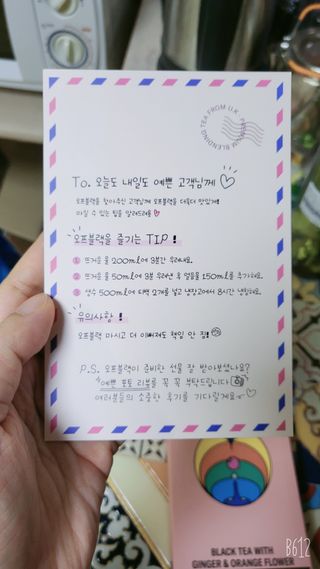 TEA FROM U.K - PREMIUM BLENDING
To. 오늘도 내일도 예쁜 고객님께 ♡
오프블랙을 찾아주신 고객님께 오프블랙을 더욱더 맛있게!
마실 수 있는 팁을 알려드려요 ♡
오프블랙을 즐기는 TIP !
① 뜨거운 물 200ml에 3분간 우려내요.
② 뜨거운 물 50ml에 3분 우려낸 후 얼음물 150ml를 추가해요.
③ 생수 500ml에 티백 2개를 넣고 냉장고에서 8시간 냉침해요.
유의사항 !
오프블랙 마시고 더 이뻐져도 책임 안 짐!
P.S. 오프블랙이 준비한 선물 잘 받아보셨나요?
예쁜 포토 리뷰를 꼭 꼭 부탁드립니다
여러분들의 소중한 후기를 기다릴게요~♡
BLACK TEA WITH
GINGER & ORANGE FLOWER
B612